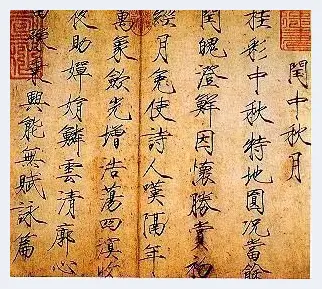 閏中秋月
桂彩中秋特地圓况當餘
閏魄澄鮮因懷勝賞初
經月免使詩人嘆隔年
萬象斂光增浩蕩四溟收
夜助嬋娟鱗雲清廓心
豫乘興能無賦詠篇